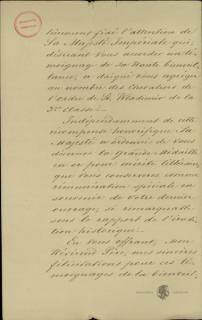 tièrement fixé l'attention de
Sa Majesté Impériale qui,
désirant vous accorder un té-
moignage de Sa Haute bienveil-
lance, a daigné vous agréger
au nombre des Chevaliers de
l'ordre de St. Wladimir de la
3e classe.
Indépendamment de cette
récompense honorifique Sa
Majesté a ordonné de vous
donner la Grande Médaille
en or pour mérite littéraire,
que vous conserverez comme
rémunération spéciale en
souvenir de votre dernier
ouvrage, si remarquable
sous le rapport de l'érudi-
tion historique.
En vous offrant, Mon
Révérend Père, mes sincères
félicitations pour ces té-
moignages de la bienveil-